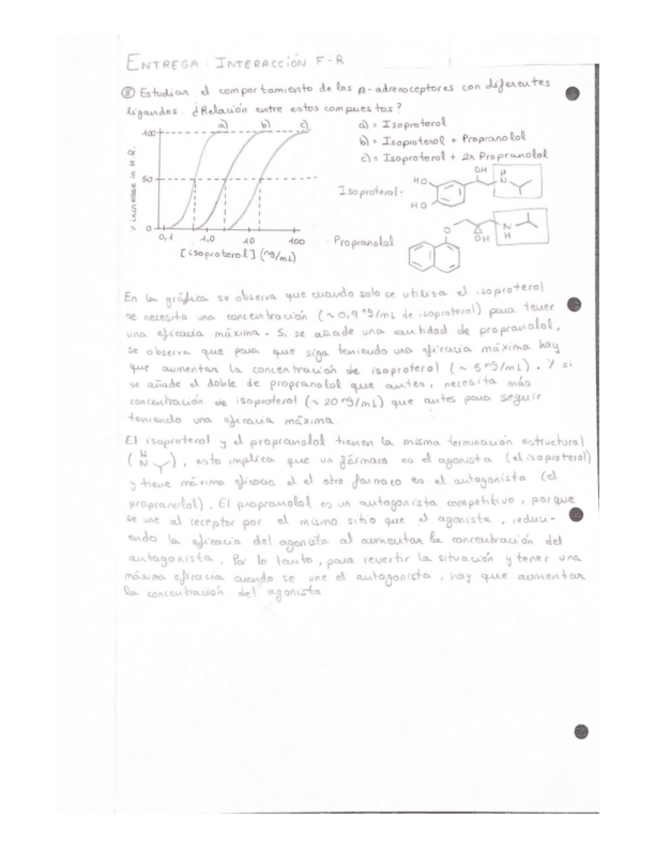 ENTREGA: INTERACCIÓN F-R
⑧ Estudian el comportamiento de los β-adrenoceptores con diferentes
ligandos. ¿Relación entre estos compuestos?
a) b) c)
100
50
0
% increase in H.R.
0,1 1,0 10 100
[isoproterol] (ng/mL)
a) = Isoproterol
b) = Isoproterol + Propranolol
c) = Isoproterol + 2x Propranolol
Isoproterol:
HO
HO
OH
H
N
Propranolol
O
OH
N
H
En la gráfica se observa que cuando solo se utiliza el isoproterol
se necesita una concentración (~0,9 ng/mL de isoproterol) para tener
una eficacia máxima. Si se añade una cantidad de propranolol,
se observa que para que siga teniendo una eficacia máxima hay
que aumentar la concentración de isoproterol (~ 5 ng/mL). Y si
se añade el doble de propranolol que antes, necesita más
concentración de isoproterol (~ 20 ng/mL) que antes para seguir
teniendo una eficacia máxima
El isoproterol y el propranolol tienen la misma terminación estructural
( H N ), esto implica que un fármaco es el agonista (el isoproterol)
y tiene máxima eficacia el el otro farmaco es el antagonista (el
propranolol). El propranolol es un antagonista competitivo, porque
se une al receptor por el mismo sitio que el agonista, reduci-
endo la eficacia del agonista al aumentar la concentración del
antagonista. Por lo tanto, para revertir la situación y tener una
máxima eficacia cuando se une el antagonista, hay que aumentar
la concentración del agonista